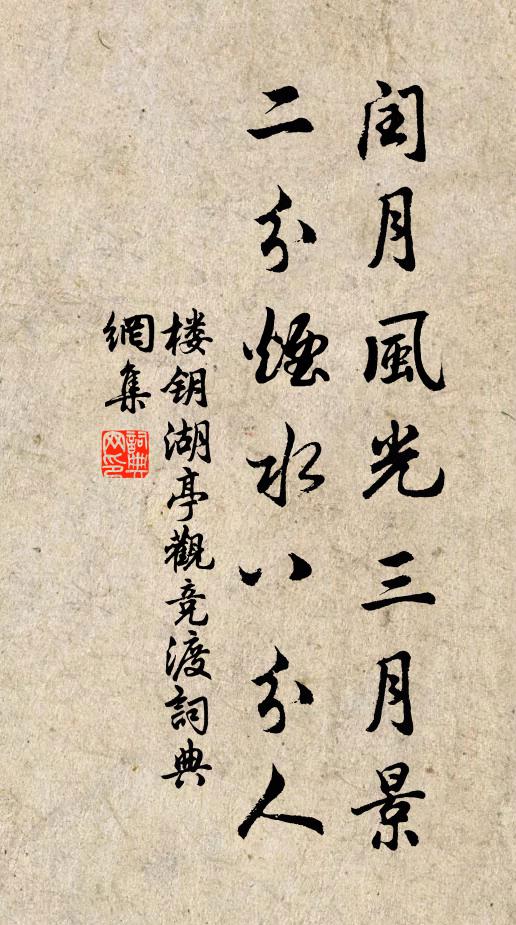 閏月風光三月景
二分煙水八分人
楼钥湖亭觀竞渡詞典
網集
詞典网印